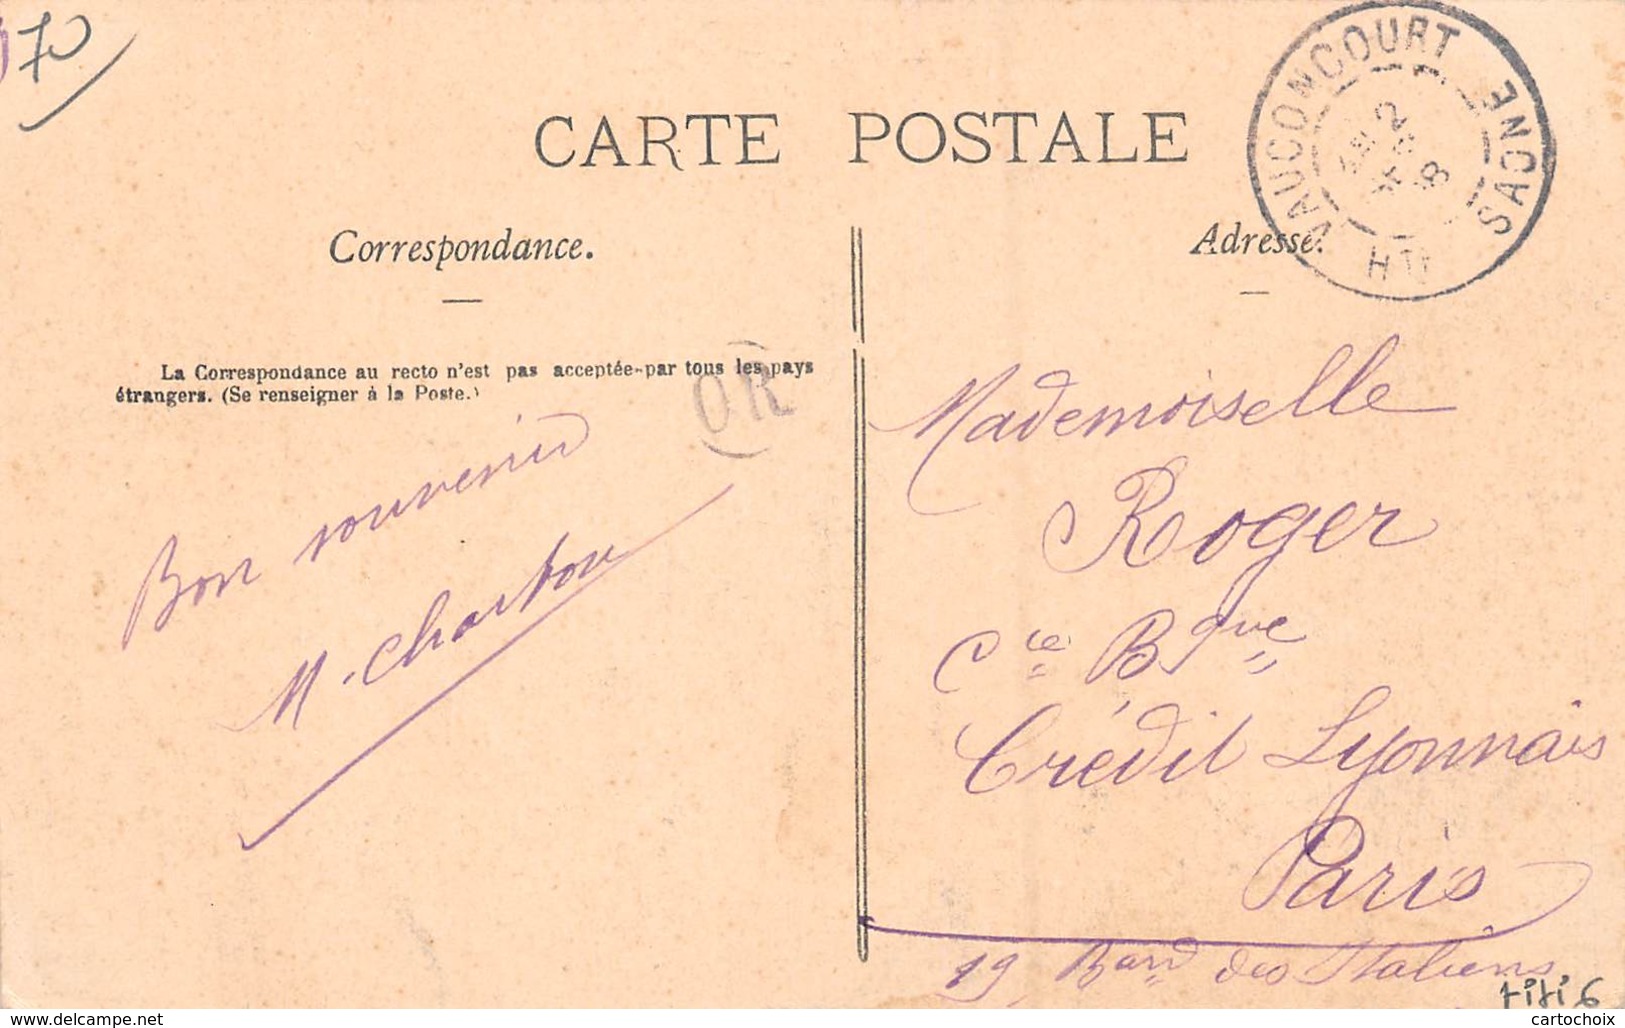 70
CARTE POSTALE
VAUCONCOURT
Hte SAONE
Correspondance.
Adresse.
La Correspondance au recto n'est pas acceptée par tous les pays
étrangers. (Se renseigner à la Poste.)
OR
Bon souvenir
M. Charton
Mademoiselle
Roger
Cie Bque
Crédit Lyonnais
Paris
19, Bard des Italiens
titi6
www.delcampe.net
cartochoix